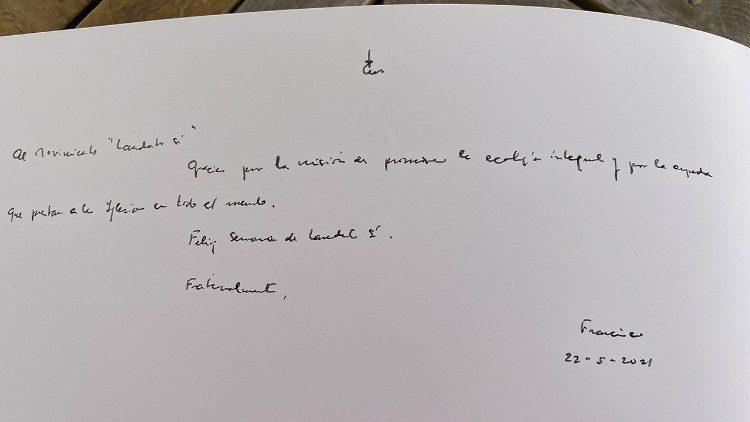 Al Movimiento "Laudato si'"
Gracias por la misión de promover la ecología integral y por la ayuda
que prestan a la Iglesia en todo el mundo.
Feliz Semana de Laudato Si'.
Fraternalmente,
Francisco
22-5-2021